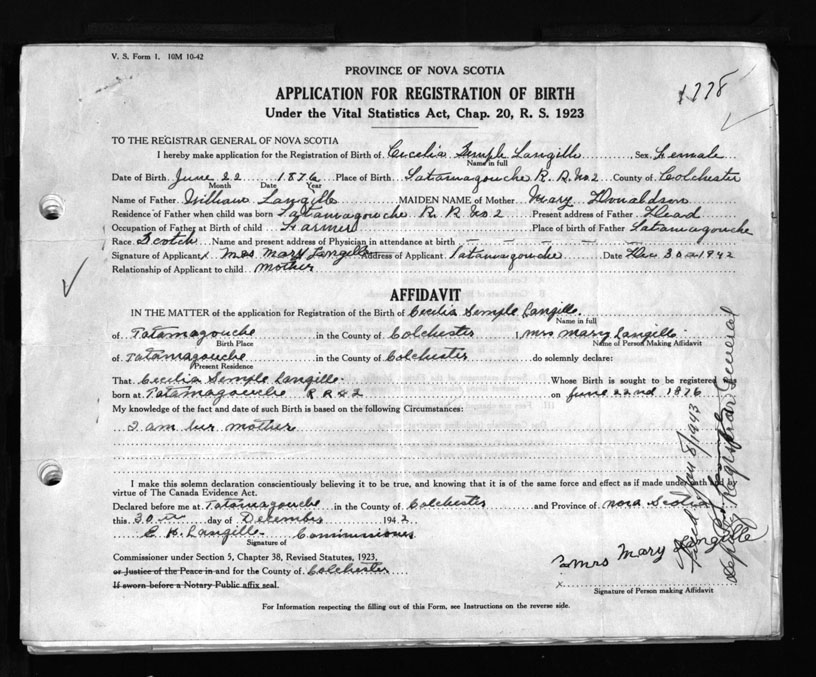 V. S. Form 1. 10M 10-42
PROVINCE OF NOVA SCOTIA
APPLICATION FOR REGISTRATION OF BIRTH
Under the Vital Statistics Act, Chap. 20, R. S. 1923
TO THE REGISTRAR GENERAL OF NOVA SCOTIA
I hereby make application for the Registration of Birth of Cecilia Semple Langille Sex Female
Name in full
Date of Birth June 22 1876 Place of Birth Tatamagouche R. R. No 2 County of Colchester
Month Date Year
Name of Father William Langille MAIDEN NAME of Mother Mary Donaldson
Residence of Father when child was born Tatamagouche R. R. No 2 Present address of Father Dead
Occupation of Father at Birth of child Farmer Place of birth of Father Tatamagouche
Race Scotch Name and present address of Physician in attendance at birth
Signature of Applicant x Mrs Mary Langille Address of Applicant Tatamagouche Date Dec 30 1942
Relationship of Applicant to child mother
AFFIDAVIT
IN THE MATTER of the application for Registration of the Birth of Cecilia Semple Langille
Name in full
of Tatamagouche in the County of Colchester I, Mrs Mary Langille
Birth Place Name of Person Making Affidavit
of Tatamagouche in the County of Colchester do solemnly declare:
Present Residence
That Cecilia Semple Langille Whose Birth is sought to be registered
born at Tatamagouche R R # 2 on June 22nd 1876
My knowledge of the fact and date of such Birth is based on the following Circumstances:
I am her mother
I make this solemn declaration conscientiously believing it to be true, and knowing that it is of the same force and effect as if made under oath and by
virtue of The Canada Evidence Act.
Declared before me at Tatamagouche in the County of Colchester and Province of Nova Scotia
this 30 day of December 1942
E K. Langille Commissioner
Signature of
Commissioner under Section 5, Chapter 38, Revised Statutes, 1923,
or Justice of the Peace in and for the County of Colchester
If sworn before a Notary Public affix seal.
Mrs Mary Langille
x
Signature of Person making Affidavit
For Information respecting the filling out of this Form, see Instructions on the reverse side.
Jan 8/1943
Deputy Registrar General